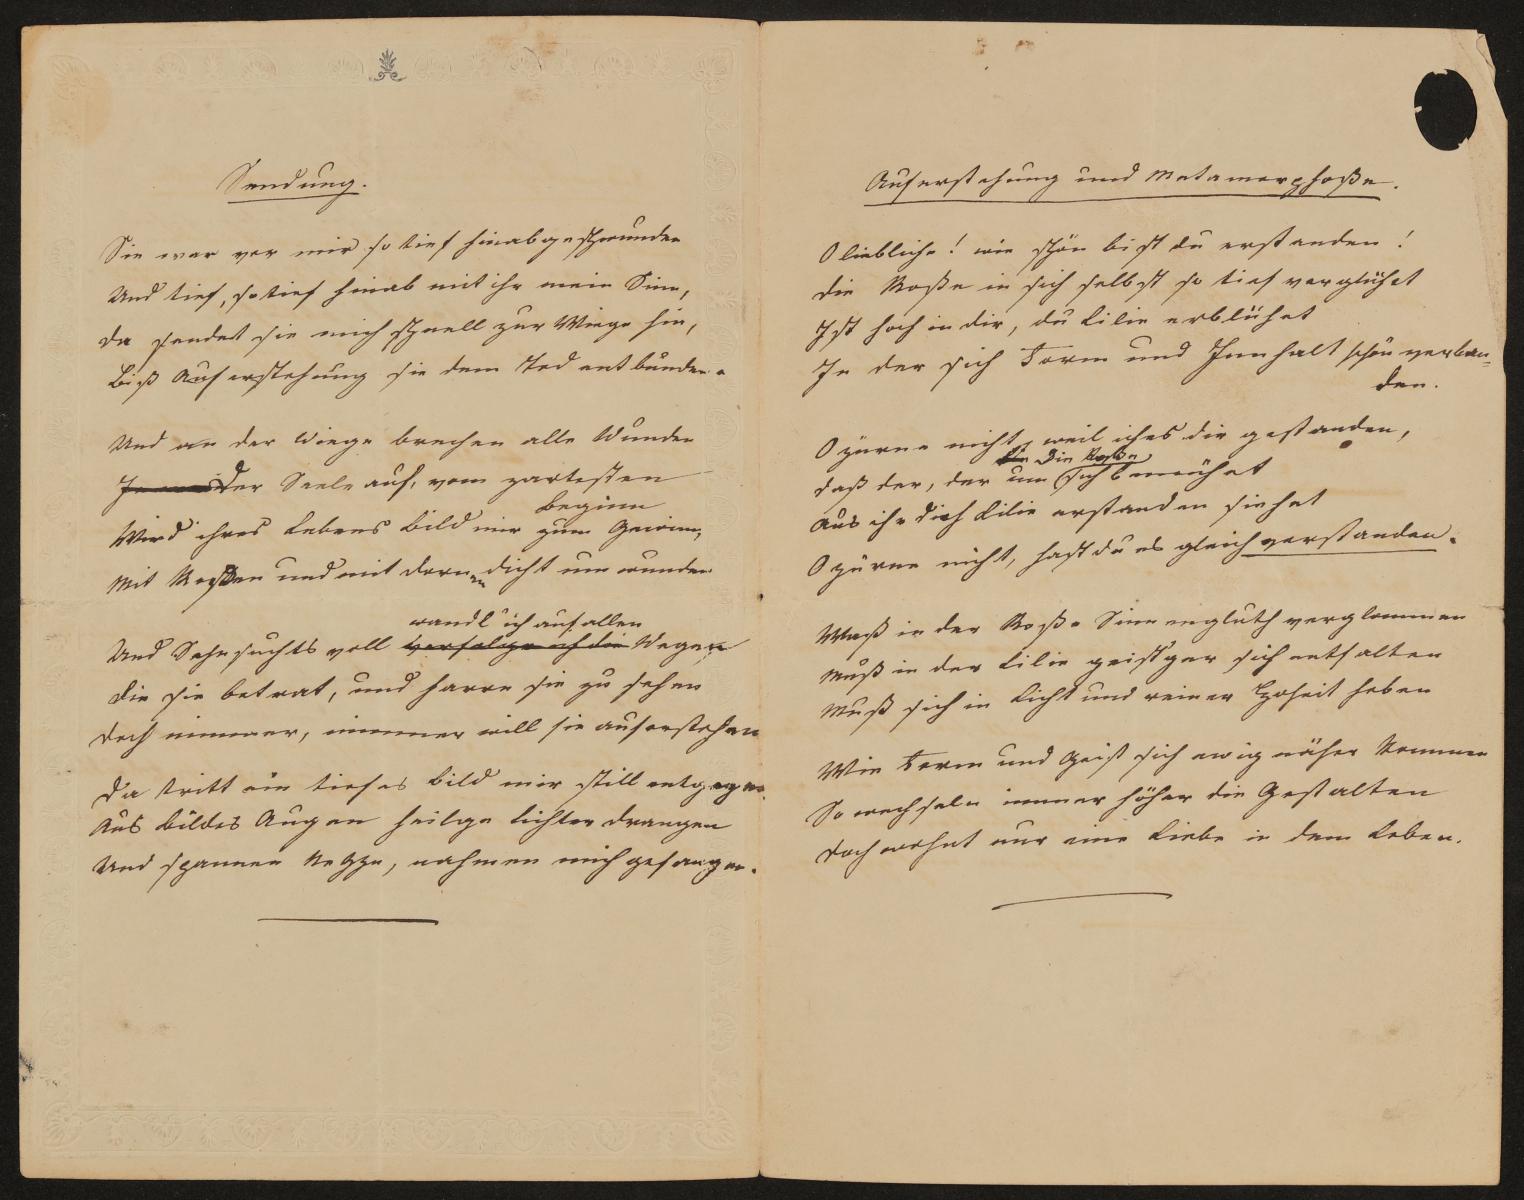 Sendung.
Sie war vor mir so tief hinabgeschwunden
Und tief, so tief hinab mit ihr mein Sinn,
Da sendet sie mich schnell zur Wiege hin,
Biß Auferstehung sie dem Tod entbunden.
Und an der Wiege brechen alle Wunden
Der Seele auf, vom zartesten
Beginn
Wird ihres Lebens Bild mir zum Gewinn,
Mit Roßen und mit Dornen dicht umwunden
wandl' ich auf allen
Und Sehnsuchts voll verfolge ich die Wegen
Die sie betrat, und harre sie zu sehen
Doch nimmer, nimmer will sie auferstehen
Da tritt ein tiefes Bild mir still entgegen.
Aus Bildes Augen heilge Lichter drangen
Und spannen Netze, nahmen mich gefangen.
Auferstehung und Metamorphoße.
O liebliche! wie schön bist du erstanden!
Die Roße in sich selbst so tief verglühet
Ist hoch in dir, du Lilie erblühet
In der sich Form und Innhalt schön verban=
den.
O zürne nicht, weil ich es dir gestanden,
die Roße
Daß der, der um sich bemühet
Aus ihr dich Lilie erstanden siehet
O zürne nicht, hast du es gleich verstanden.
Waß in der Roße Sinnengluth verglommen
Muß in der Lilie geist'ger sich entfalten
Muß sich in Licht und reiner Hoheit heben
Wie Form und Geist sich ewig näher kommen
So wechseln immer höher die Gestalten
Doch wohnt nur eine Liebe in dem Leben.